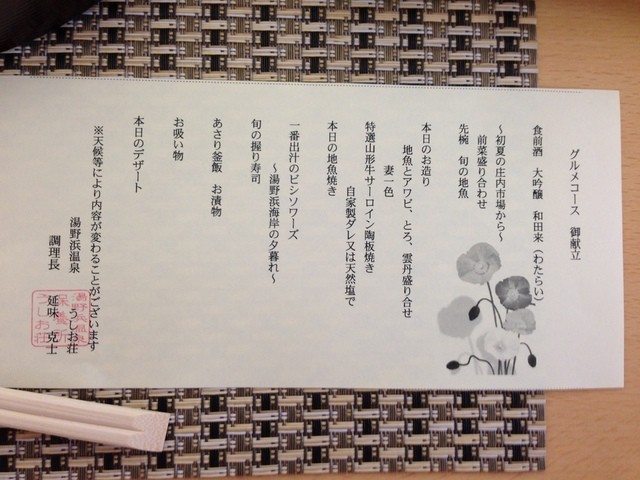 グルメコース 御献立
食前酒 大吟醸 和田来(わたらい)
～初夏の庄内市場から～
前菜盛り合わせ
先椀 旬の地魚
本日のお造り
地魚とアワビ、とろ、雲丹盛り合せ
妻一色
特選山形牛サーロイン陶板焼き
自家製ダレ又は天然塩で
本日の地魚焼き
一番出汁のビシソワーズ
～湯野浜海岸の夕暮れ～
旬の握り寿司
あさり釜飯 お漬物
お吸い物
本日のデザート
※天候等により内容が変わることがございます
湯野浜温泉 うしお荘
調理長 延味 克士